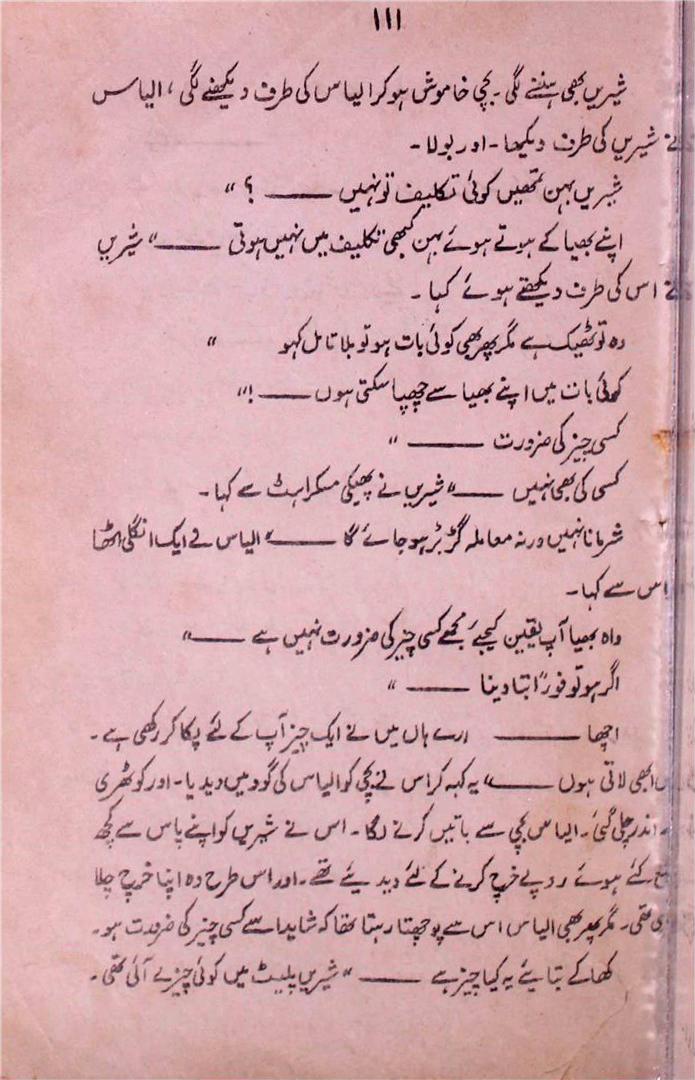 ۱۱۱
شیریں بھی ہنسنے لگی۔ بچی خاموش ہو کر الیاس کی طرف دیکھنے لگی، الیاس
نے شیریں کی طرف دیکھا۔ اور بولا۔
شیریں بہن تمھیں کوئی تکلیف تو نہیں ——— ؟ "
اپنے بھیا کے ہوتے ہوئے بہن کبھی تکلیف میں نہیں ہوتی ——— " شیریں
نے اس کی طرف دیکھتے ہوئے کہا۔
وہ تو ٹھیک ہے مگر پھر بھی کوئی بات ہو تو بلا تامل کہو "
کوئی بات میں اپنے بھیا سے چھپا سکتی ہوں ——— ! "
کسی چیز کی ضرورت ——— "
کسی کی بھی نہیں ——— " شیریں نے پھیکی مسکراہٹ سے کہا۔
شرمانا نہیں ورنہ معاملہ گڑبڑ ہو جائے گا ——— " الیاس نے ایک انگلی اٹھا
اس سے کہا۔
واہ بھیا آپ یقین کیجئے مجھے کسی چیز کی ضرورت نہیں ہے ——— "
اگر ہو تو فوراً بتا دینا ——— "
اچھا ——— ارے ہاں میں نے ایک چیز آپ کے لئے پکا کر رکھی ہے۔
ابھی لاتی ہوں ——— " یہ کہہ کر اس نے بچی کو الیاس کی گود میں دیدیا۔ اور کوٹھری
اندر چلی گئی۔ الیاس بچی سے باتیں کرنے لگا۔ اس نے شیریں کو اپنے پاس سے کچھ
کئے ہوئے روپے خرچ کرنے کے لئے دیدیئے تھے۔ اور اس طرح وہ اپنا خرچ چلا
تھی۔ مگر پھر بھی الیاس اس سے پوچھتا رہتا تھا کہ شاید اسے کسی چیز کی ضرورت ہو۔
کھا کے بتایئے یہ کیا چیز ہے ——— " شیریں پلیٹ میں کوئی چیز لے آئی تھی۔